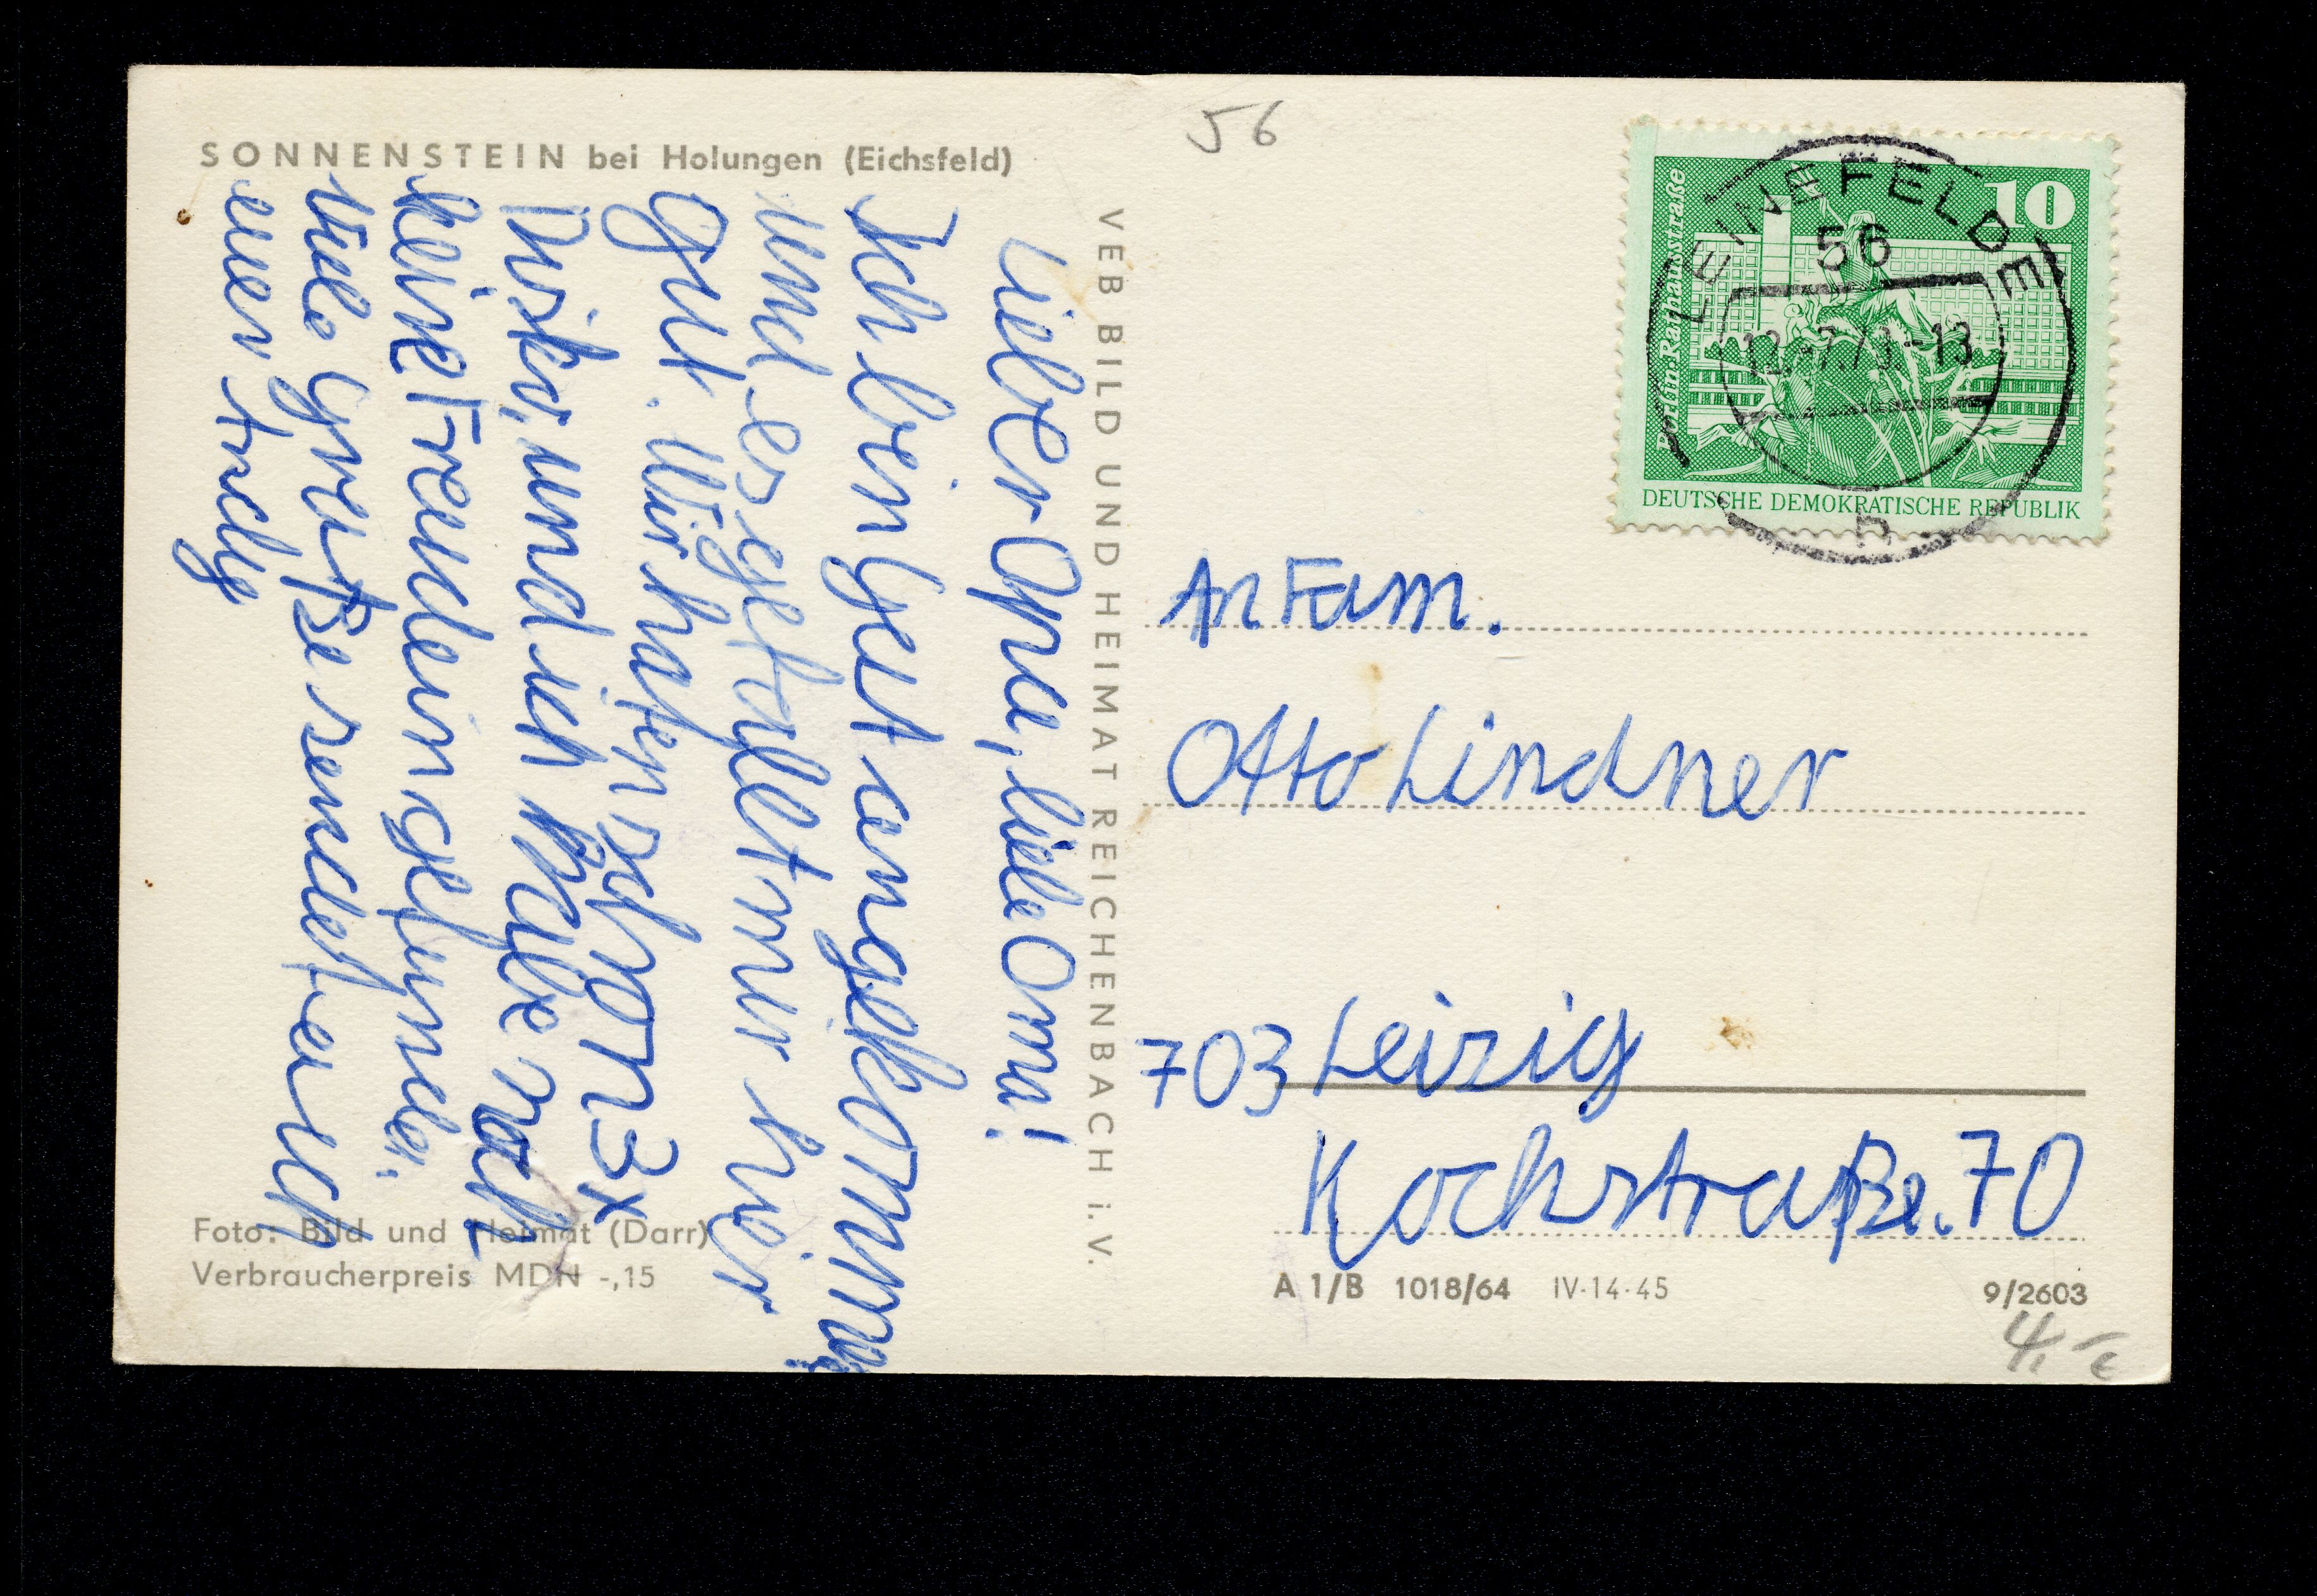 SONNENSTEIN bei Holungen (Eichsfeld)
Lieber Opa, liebe Oma!
Ich bin gut angekomm
und es gefallt mir hier
gut. Wir hatten schon 3x
Disko, und ich habe noch
keine Freundein gefunden.
Viele Grüße sendet euch
euer Andy
Foto: Bild und Heimat (Darr)
Verbraucherpreis MDN -,15
VEB BILD UND HEIMAT REICHENBACH i. V.
56
Berlin-Rathausstraße
10
DEUTSCHE DEMOKRATISCHE REPUBLIK
LEINEFELDE
56
An Fam.
Otto Lindner
703 Leizig
Kochstraße. 70
A 1/B 1018/64 IV-14-45
9/2603